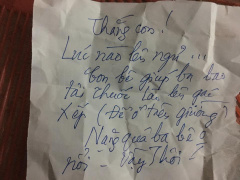 Thắng con!
Lúc nào lên ngủ ...
Con bê giúp ba bao
tải thuốc lào lên gác
xếp (Để ở trên giường)
Nặng quá ba bê ô
nổi - Vậy thôi!